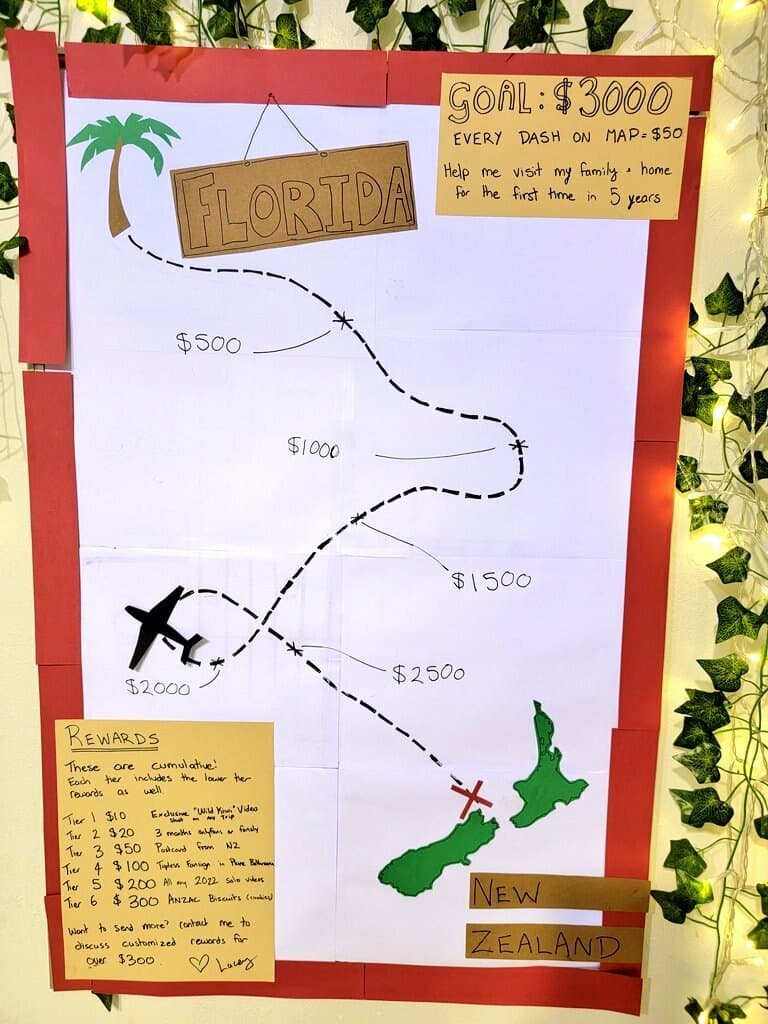 GOAL: $3000
EVERY DASH ON MAP = $50
Help me visit my family + home
for the first time in 5 years
FLORIDA
$500
$1000
$1500
$2000
$2500
REWARDS
These are cumulative!
Each tier includes the lower tier
rewards as well
Tier 1 $10 Exclusive "Wild Kiwi" Video
shot on my trip
Tier 2 $20 3 months onlyfans or fansly
Tier 3 $50 Postcard from NZ
Tier 4 $100 Topless Fansign in Plane Bathroom
Tier 5 $200 All my 2022 Solo Videos
Tier 6 $300 ANZAC Biscuits (cookies)
Want to send more? contact me to
discuss customized rewards for
over $300. ♡ Lacey
NEW
ZEALAND